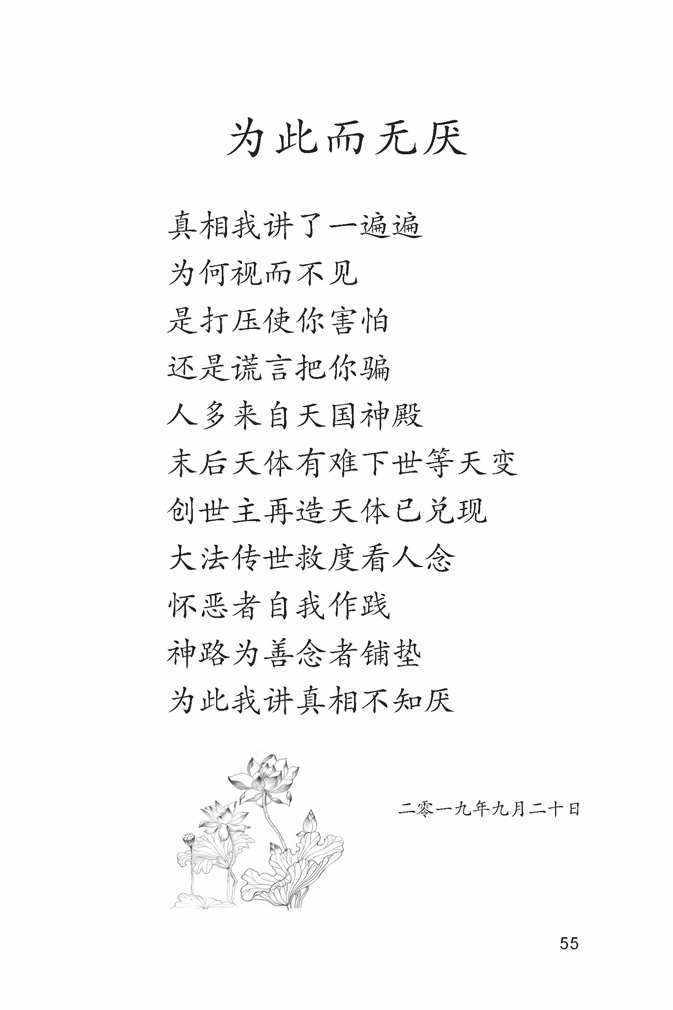 为此而无厌
真相我讲了一遍遍
为何视而不见
是打压使你害怕
还是谎言把你骗
人多来自天国神殿
末后天体有难下世等天变
创世主再造天体已兑现
大法传世救度看人念
怀恶者自我作践
神路为善念者铺垫
为此我讲真相不知厌
二零一九年九月二十日
55